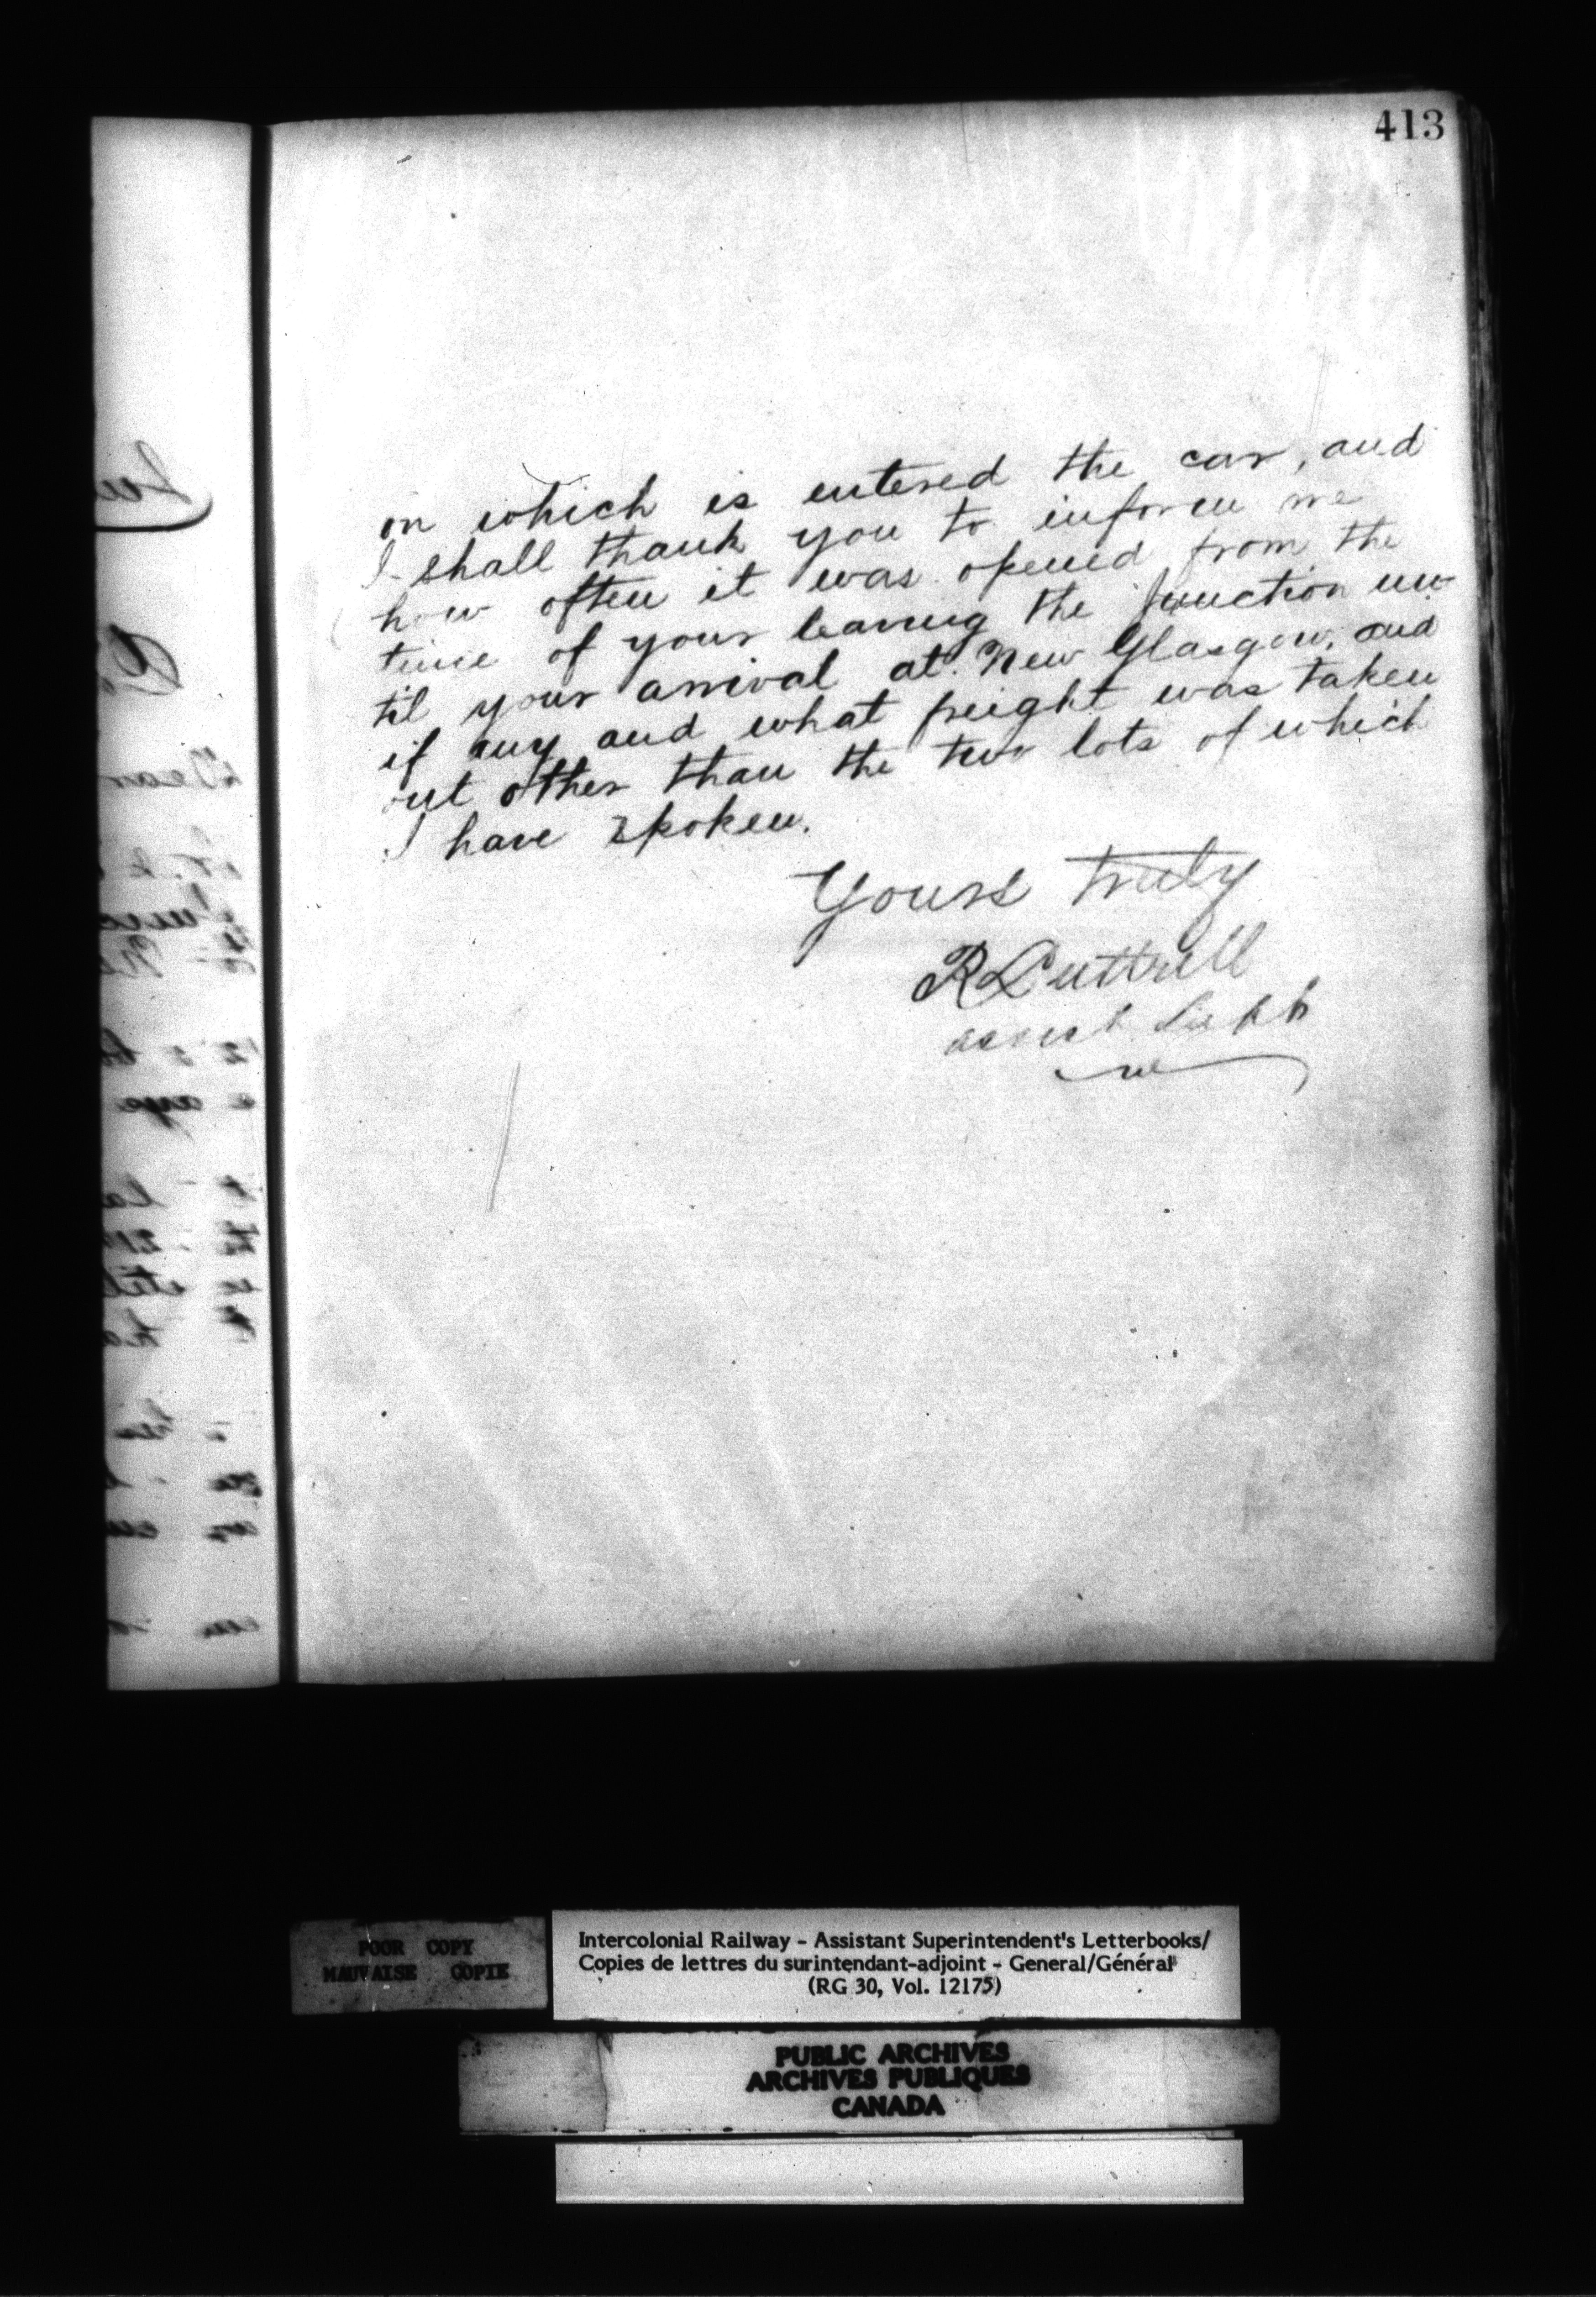 413
on which is entered the car, and
I shall thank you to inform me
how often it was opened from the
time of your leaving the Junction un-
til your arrival at New Glasgow, and
if any and what freight was taken
out other than the two lots of which
I have spoken.
Yours truly
R Luttrell
assist Supt
POOR COPY
MAUVAISE COPIE
Intercolonial Railway - Assistant Superintendent's Letterbooks/
Copies de lettres du surintendant-adjoint - General/Général
(RG 30, Vol. 12175)
PUBLIC ARCHIVES
ARCHIVES PUBLIQUES
CANADA